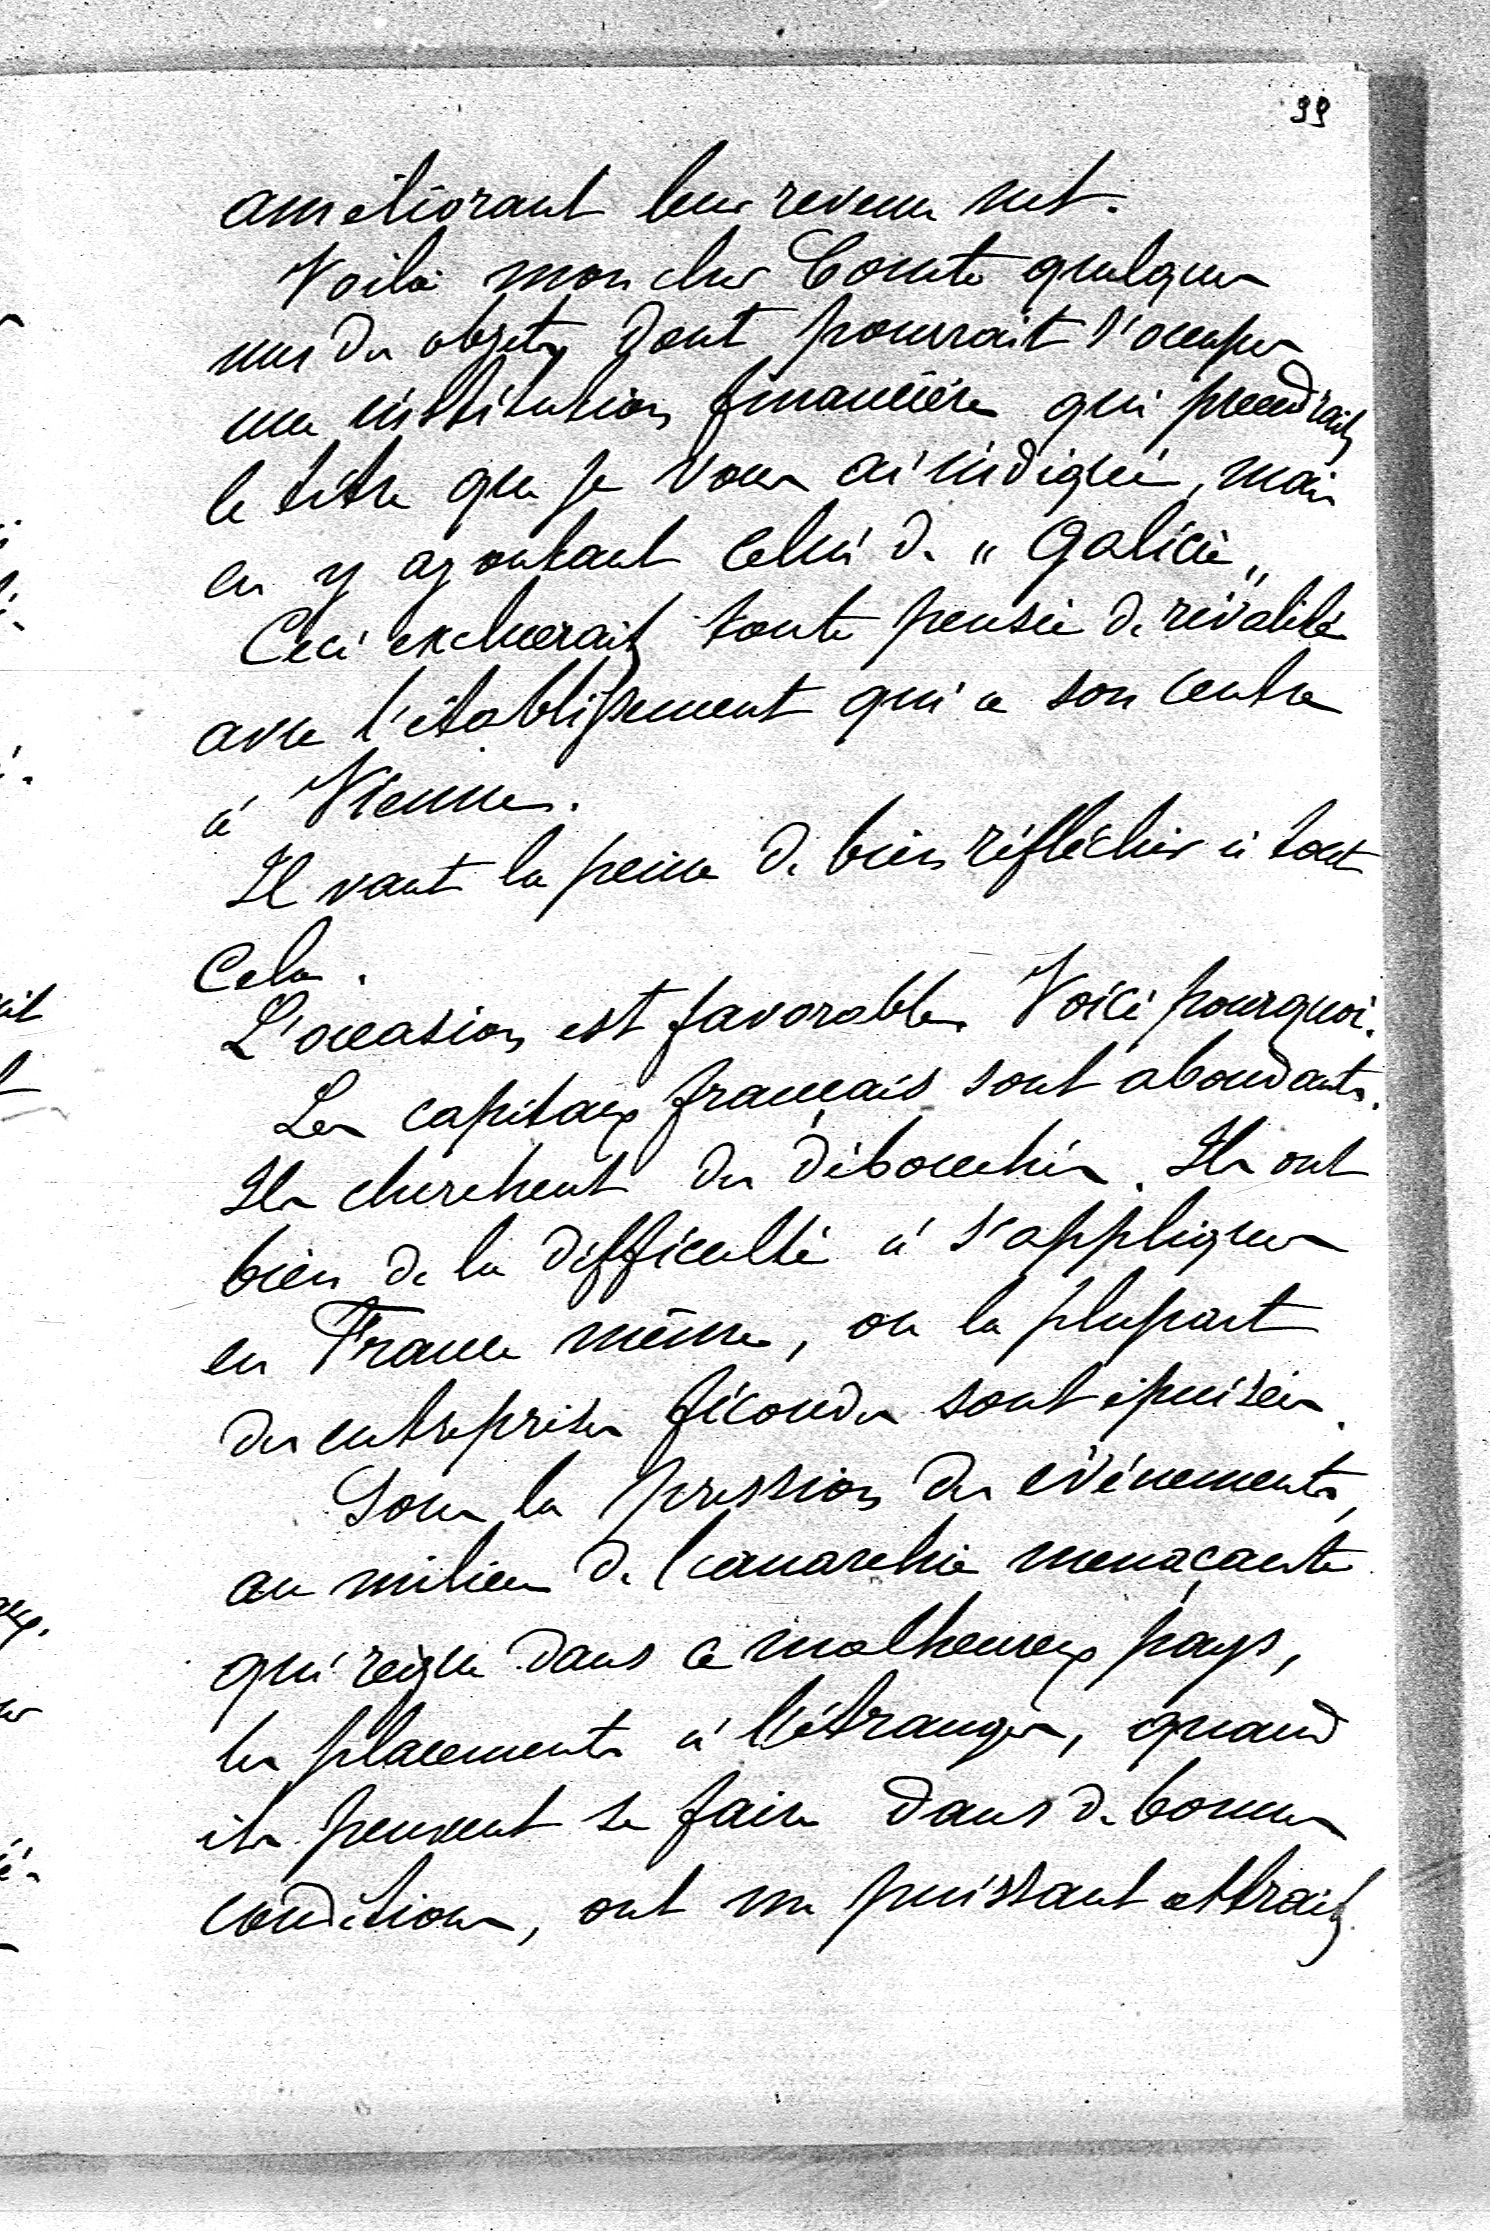 99
améliorant leur revenu net.
Voilà mon cher Comte quelques
uns des objets dont pourrait s'occuper
une institution financière qui prendrait
le titre que je vous ai indiqué, mais
en y ajoutant celui de "Galicie"
Ceci excluerait toute pensée de rivalité
avec l'établissement qui a son centre
à Vienne.
Il vaut la peine de bien réfléchir à tout
cela.
L'occasion est favorable. Voici pourquoi.
Les capitaux français sont abondants.
Ils cherchent des débouchés. Ils ont
bien de la difficulté à s'appliquer
en France même, où la plupart
des entreprises fécondes sont épuisées.
Sous la pression des événements,
au milieu de l'anarchie menaçante
qui règne dans ce malheureux pays,
les placements à l'étranger, quand
ils peuvent se faire dans de bonnes
conditions, ont un puissant attrait